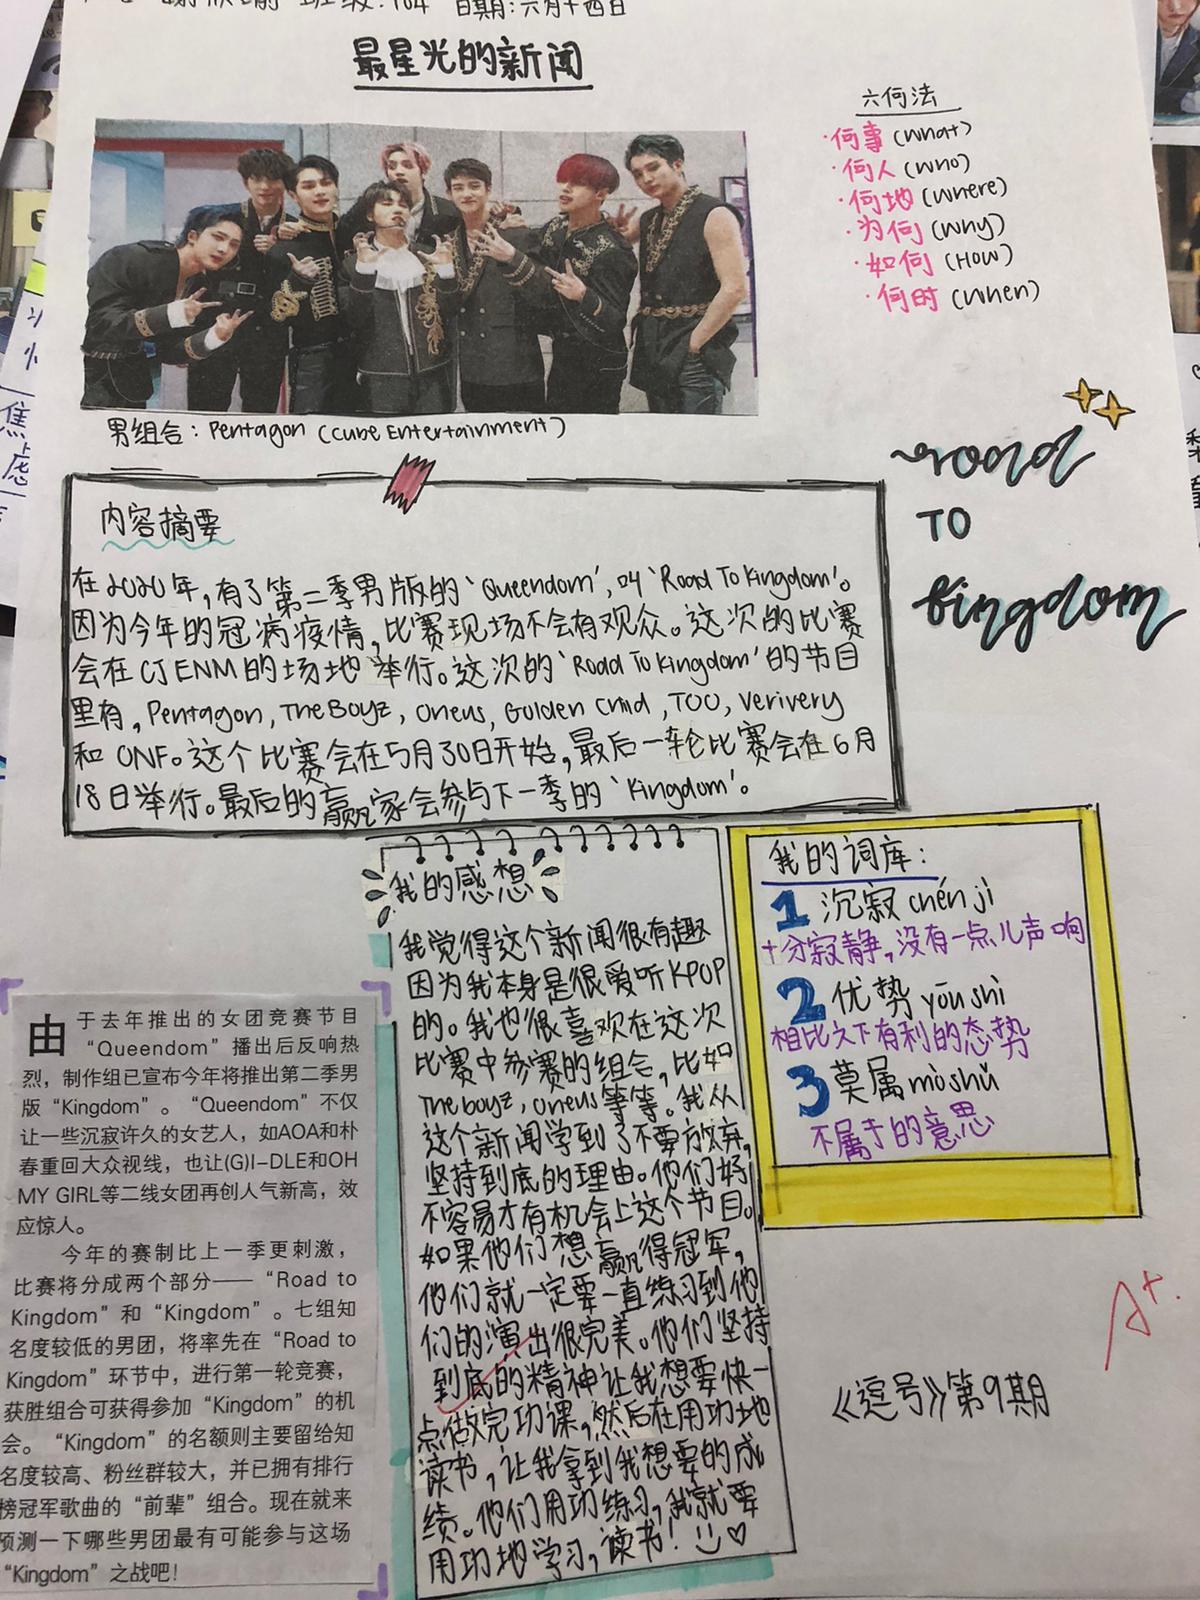 班级:104 日期:六月十四日
最星光的新闻
六何法
·何事(What)
·何人(Who)
·何地(Where)
·为何(Why)
·如何(How)
·何时(When)
男组合：Pentagon (Cube Entertainment)
road
TO
Kingdom
内容摘要
在2020年,有了第二季男版的‘Queendom’,叫‘Road To Kingdom’。
因为今年的冠病疫情,比赛现场不会有观众。这次的比赛
会在CJ ENM的场地举行。这次的‘Road To Kingdom’的节目
里有,Pentagon,The Boyz,Oneus,Golden Child,TOO,Verivery
和ONF。这个比赛会在5月30日开始,最后一轮比赛会在6月
18日举行。最后的赢家会参与下一季的‘Kingdom’。
我的感想
我觉得这个新闻很有趣
因为我本身是很爱听KPOP
的。我也很喜欢在这次
比赛中参赛的组合,比如
The boyz,Oneus等等。我从
这个新闻学到了不要放弃,
坚持到底的理由。他们好
不容易才有机会上这个节目。
如果他们想赢得冠军,
他们就一定要一直练习到他
们的演出很完美。他们坚持
到底的精神让我想要快一
点做完功课,然后在用功地
读书,让我拿到我想要的成
绩。他们用功练习,我就要
用功地学习,读书!
我的词库:
1 沉寂 chén jì
十分寂静,没有一点儿声响
2 优势 yōu shì
相比之下有利的态势
3 莫属 mò shǔ
不属于的意思
由于去年推出的女团竞赛节目
“Queendom”播出后反响热
烈，制作组已宣布今年将推出第二季男
版“Kingdom”。“Queendom”不仅
让一些沉寂许久的女艺人，如AOA和朴
春重回大众视线，也让(G)I-DLE和OH
MY GIRL等二线女团再创人气新高，效
应惊人。
今年的赛制比上一季更刺激，
比赛将分成两个部分——“Road to
Kingdom”和“Kingdom”。七组知
名度较低的男团，将率先在“Road to
Kingdom”环节中，进行第一轮竞赛，
获胜组合可获得参加“Kingdom”的机
会。“Kingdom”的名额则主要留给知
名度较高、粉丝群较大，并已拥有排行
榜冠军歌曲的“前辈”组合。现在就来
预测一下哪些男团最有可能参与这场
“Kingdom”之战吧！
A+
《逗号》第9期
焦虑